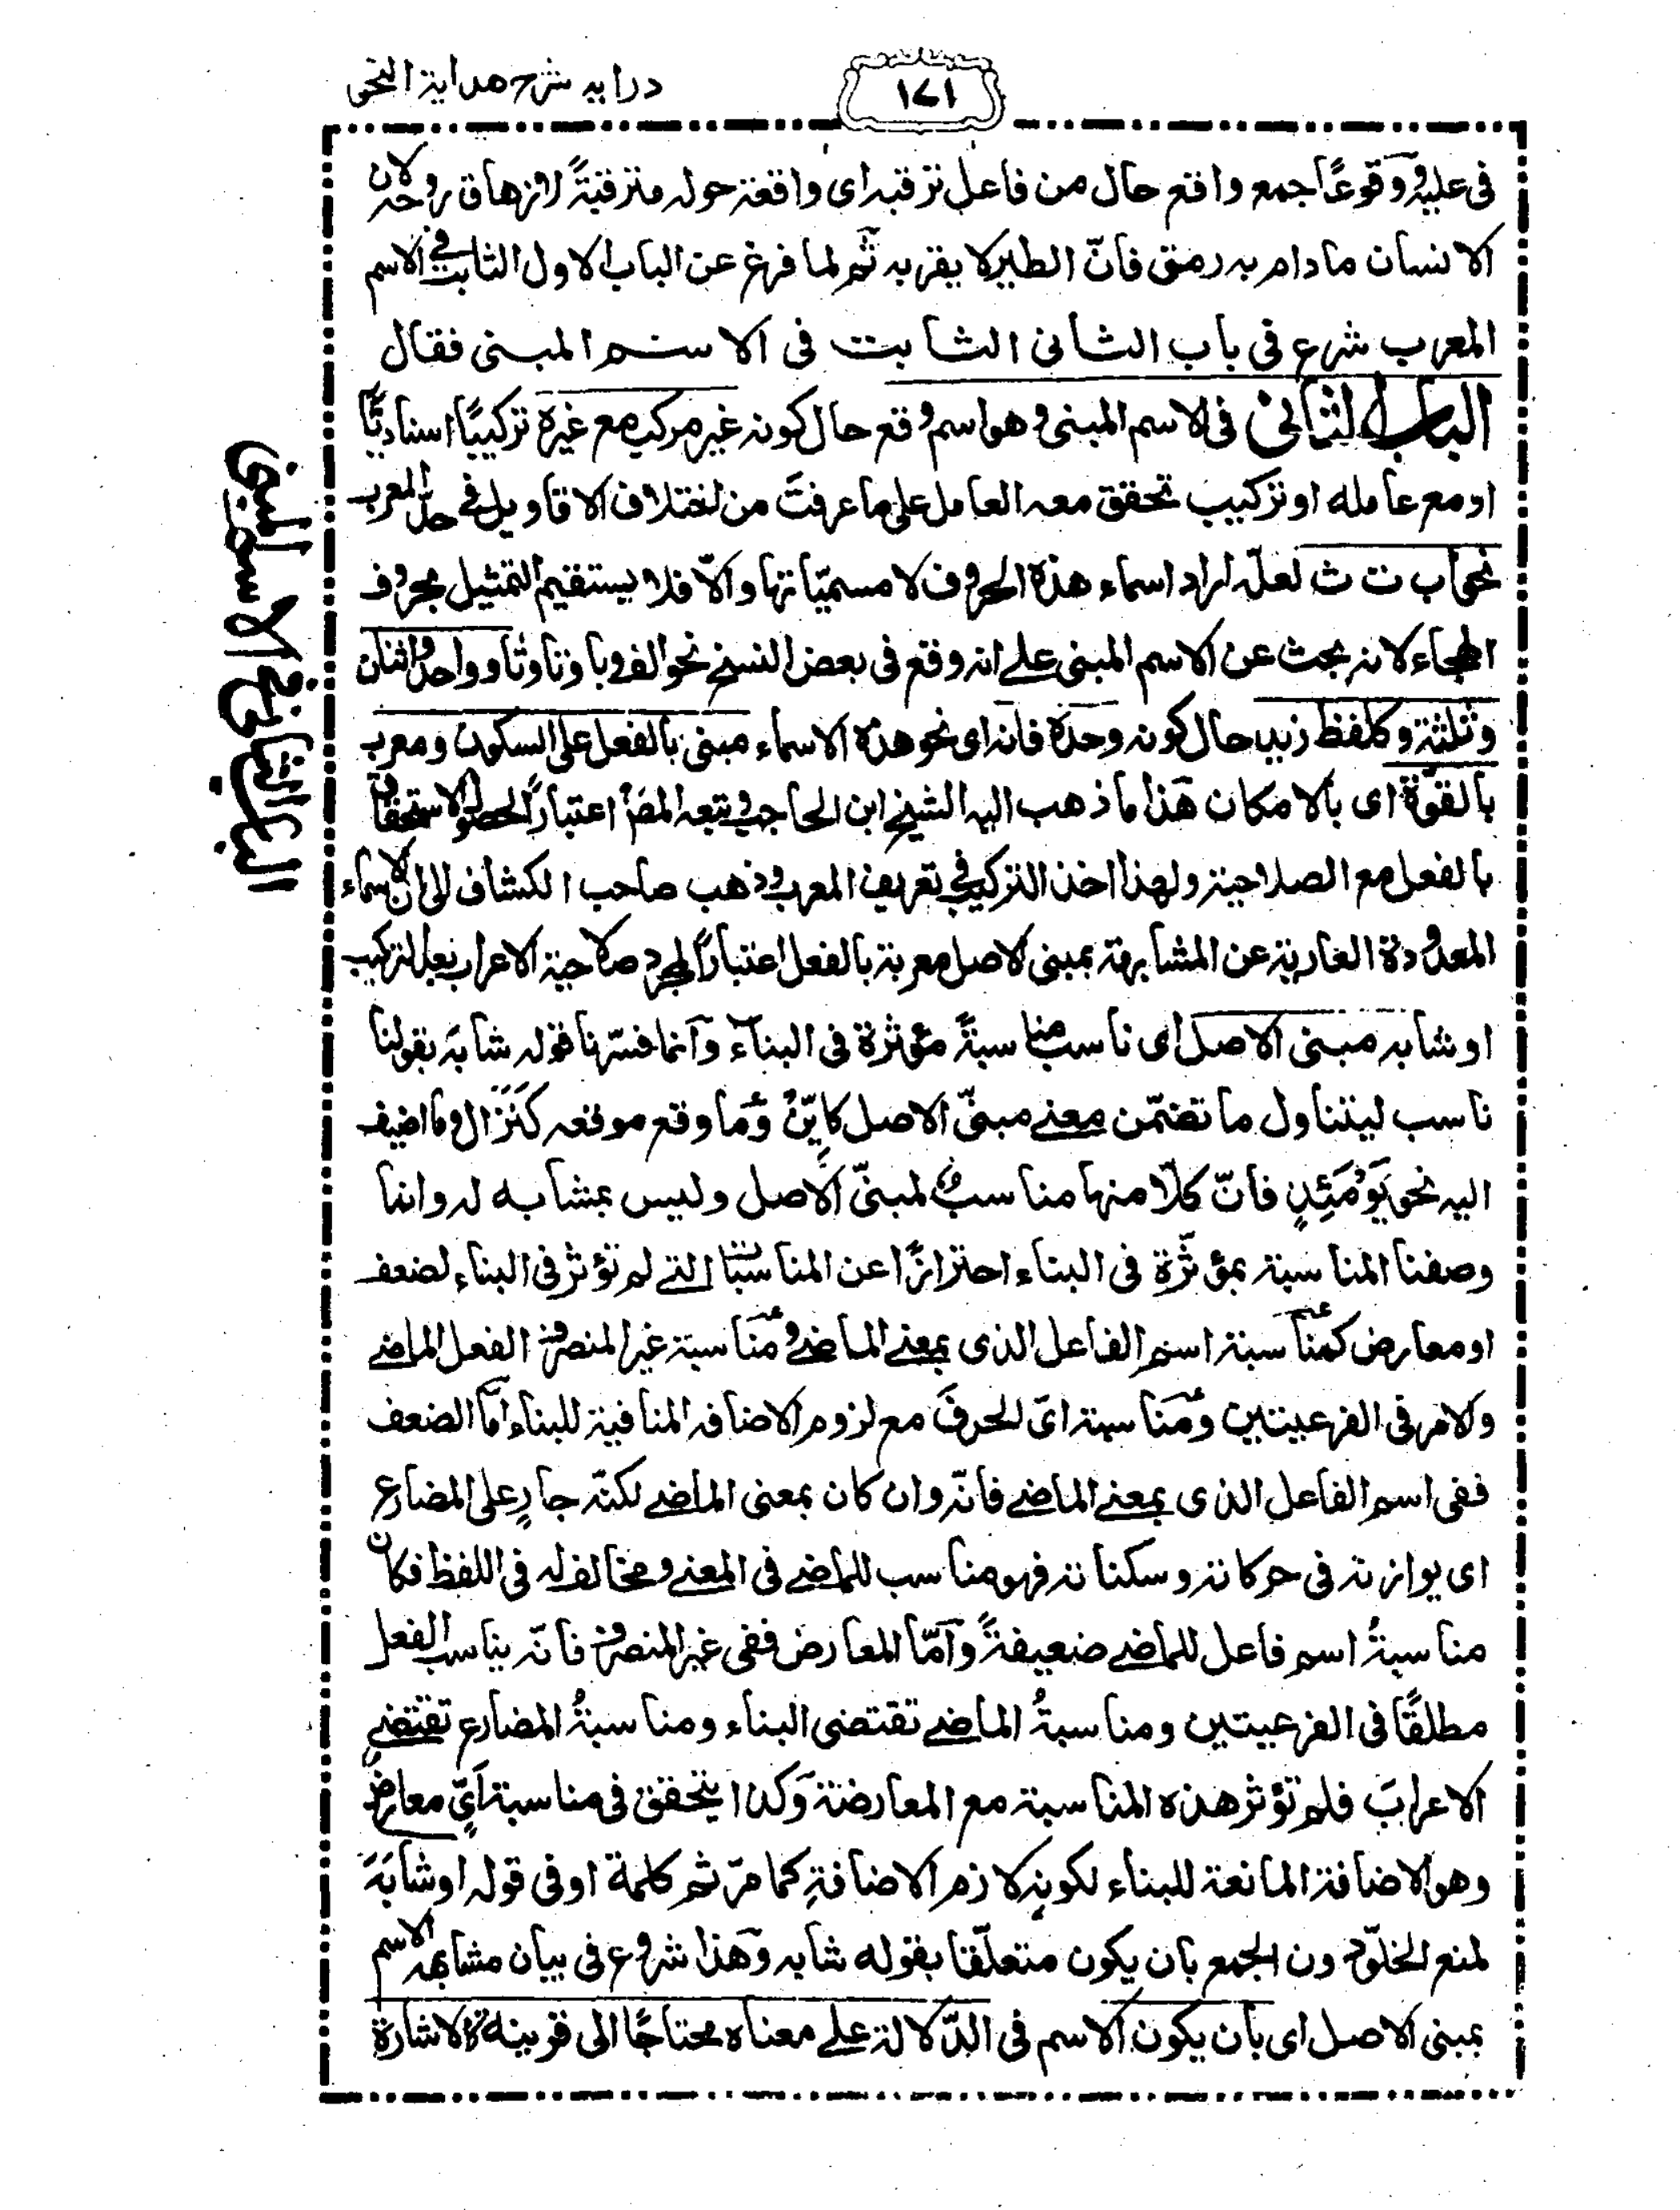 درايه شرح هداية النحو
١٧١
فى عليه ووقوعًا جمع واقع حال من فاعل ترقبه اى واقعة حوله مترقبةً لازهاق روحه لان
الانسان مادام به رمق فانّ الطير لا يقربه ثم لما فرغ عن الباب الاول الثابت فى الاسم
المعرب شرع فى باب الثانى الثابت فى الاسم المبنى فقال
الباب الثانى فى الاسم المبنى وهو اسم وقع حال كونه غير مركب مع غيره تركيبًا اسناديًّا
او مع عامله او تركيب تحقق معه العامل على ما عرفتَ من اختلاف الاقاويل فى حدّ المعرب
نحو ا ب ت ث لعلّه اراد اسماء هذه الحروف لا مسمّياتها والّا فلا يستقيم التمثيل بحروف
الهجاء لانه بحث عن الاسم المبنى على انه وقع فى بعض النسخ نحو الف وبا وتا وثا و واحد واثنان
وثلثة وكلفظ زيد حال كونه وحدهٗ فانه اى نحو هذه الاسماء مبنى بالفعل على السكون ومعرب
بالقوّة اى بالامكان هذا ما ذهب اليه الشيخ ابن الحاجب وتبعه المصؒ اعتبارًا لحصول الاستحقاق
بالفعل مع الصلاحية ولهذا اخذ التركيب فى تعريف المعرب وذهب صاحب الكشاف الى ان الاسماء
المعدودة العارية عن المشابهة بمبنى الاصل معربة بالفعل اعتبارًا لمجرد صلاحية الاعراب بعد التركيب
او شابه مبنى الاصل اى ناسب مناسبةً مؤثرة فى البناء وانما فسّرنا قوله شابه بقولنا
ناسب ليتناول ما تضمّن معنى مبنىّ الاصل كاَيْنَ وما وقع موقعه كنَزَال وما اضيف
اليه نحو يَوْمَئِذٍ فانّ كلّا منها مناسبٌ لمبنىّ الاصل وليس بمشابه له وانما
وصفنا المناسبة بمؤثّرة فى البناء احترازًا عن المناسبات التى لم تؤثر فى البناء لضعف
او معارض كمناسبة اسم الفاعل الذى بمعنى الماضى ومناسبة غير المنصرف الفعل الماضى
والامر فى الفرعيتين ومناسبة اىّ الحرفَ مع لزوم الاضافه المنافية للبناء امّا الضعف
ففى اسم الفاعل الذى بمعنى الماضى فانّه وان كان بمعنى الماضى لكنّه جارٍ على المضارع
اى يوازنه فى حركاته وسكناته فهو مناسب للماضى فى المعنى ومخالف له فى اللفظ فكان
مناسبةُ اسم فاعل للماضى ضعيفةً وامّا المعارض ففى غير المنصرف فانّه يناسب الفعل
مطلقًا فى الفرعيتين ومناسبةُ الماضى تقتضى البناء ومناسبةُ المضارع تقتضى
الاعرابَ فلم تؤثر هذه المناسبة مع المعارضة وكذا يتحقق فى مناسبة اىٍّ معارضٌ
وهو الاضافة المانعة للبناء لكونه لازم الاضافةِ كما مرّ ثم كلمة او فى قوله او شابهَ
لمنع الخلوّ دون الجمع بان يكون متعلّقا بقوله شابه وهذا شروع فى بيان مشابهة الاسم
بمبنى الاصل اى بان يكون الاسم فى الدّلالة على معناه محتاجًا الى قرينة كالاشارة
الباب الثانى فى الاسم المبنى